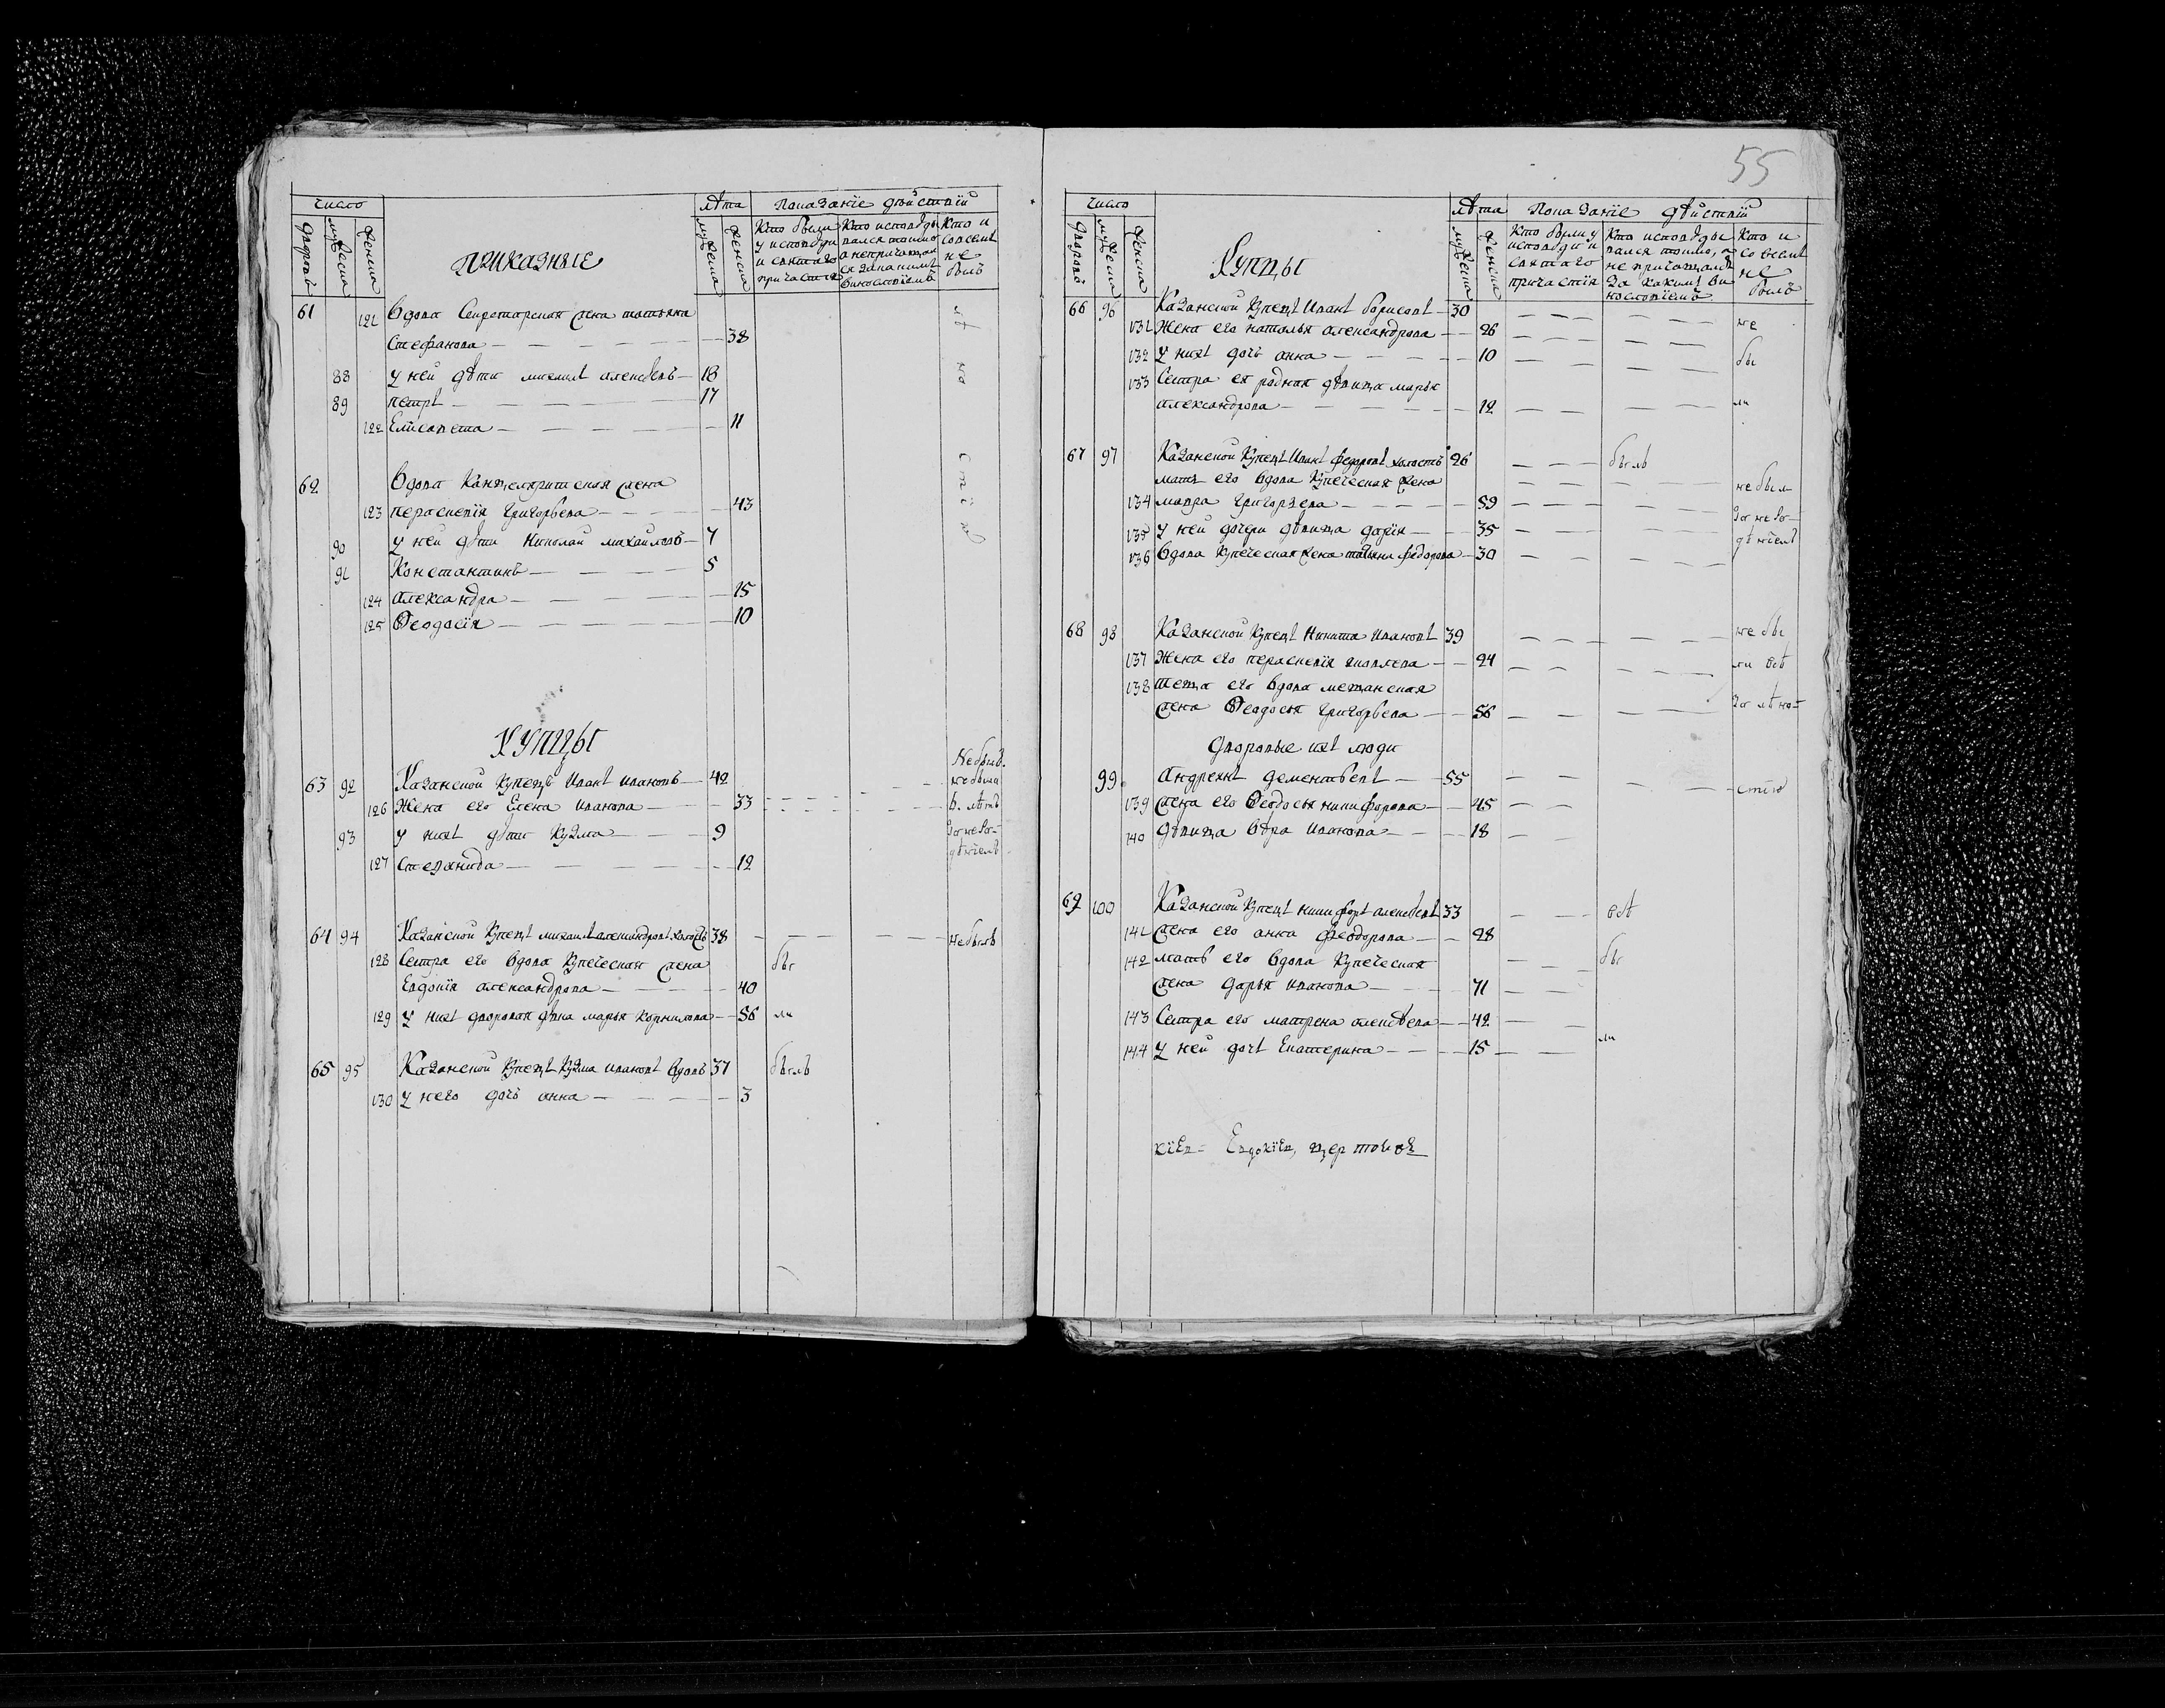 55
число
лѣта
Показанїе дѣйствїй
дворовъ
мужеска
женска
приказные
мужеска
женска
Кто были у исповѣди и святаго причастия
Кто исповѣдывался токмо а непричащался за какимъ винословїемъ
Кто и совсемъ не былъ
61 121 вдова Секретарская жена татьяна
Стефанова — 38
88 у ней дѣти михаилъ алексѣевъ — 18
89 петръ — 17
122 Елисавета — 11
62 вдова Канцеляритская жена
123 параскевїя григорьева — 43
90 у ней дѣти Николай михайловъ — 7
91 Константинъ — 5
124 александра — 15
125 Ѳеодосїя — 10
купцы
63 92 Казанской купецъ Иванъ ивановъ — 42
126 Жена его Елена иванова — 33
93 у нихъ дѣти кузма — 9
127 Степанида — 12
64 94 Казанской купецъ михаилъ александровъ холостъ 38 — небылъ
128 Сестра его вдова купеческая жена бы
Евдокїя александрова — 40
129 у нихъ дворовая дѣвка марья корнилова — 56 ли
65 95 Казанской купецъ кузма ивановъ вдовъ 37 былъ
130 у него дочь анна — 3
число
лѣта
Показанїе дѣйствїй
дворовъ
мужеска
женска
Купцы
мужеска
женска
Кто были у исповѣди и святаго причастия
Кто исповѣдывался токмо, а не причащался за какимъ винословїемъ
Кто и совсемъ не былъ
66 96 Казанской купецъ Иванъ борисовъ — 30
131 Жена его наталья александрова — 26 не
132 у нихъ дочь анна — 10 бы
133 Сестра ея родная дѣвица марья
александрова — 12 ли
67 97 Казанской купецъ Иванъ федоровъ холостъ 26 — былъ
мать его вдова купеческая жена
134 мавра григорьева — 59 не был
135 у ней дочери дѣвица дарїя — 35
136 вдова купеческая жена татьяна федорова — 30
68 98 Казанской купецъ Никита ивановъ 39 — не бы
137 Жена его параскевїя яковлева — 24 ли всѣ
138 теща его вдова мещанская
жена Ѳеодосья григорьева — 56
дворовые ихъ люди
99 андреянъ дементьевъ — 55
139 жена его Ѳеодосья никифорова — 45
140 дѣвица вѣра иванова — 18
69 100 Казанской купецъ никифоръ алексѣевъ 33 — всѣ
141 жена его анна феодорова — 28
142 мать его вдова купеческая бы
жена дарья иванова — 71
143 Сестра его матрена алексѣева — 42
144 у ней дочь Екатерина — 15 ли